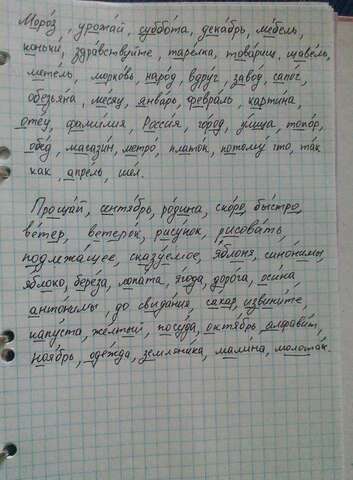 Моро́з, урожа́й, суббо́та, дека́брь, ме́бель,
коньки́, здра́вствуйте, таре́лка, това́рищ, щаве́ль,
мете́ль, морко́вь, наро́д, вдруг, заво́д, сапо́г,
обезья́на, ме́сяц, янва́рь, февра́ль, карти́на,
оте́ц, фами́лия, Росси́я, го́род, у́лица, топо́р,
обе́д, магази́н, метро́, плато́к, потому́ что, так
как, апре́ль, шёл.
Проща́й, сентя́брь, ро́дина, ско́ро, бы́стро,
ве́тер, ветеро́к, рису́нок, рисова́ть,
подлежа́щее, сказу́емое, я́блоня, сино́нимы,
я́блоко, берёза, лопа́та, я́года, доро́га, оси́на
анто́нимы, до свида́ния, са́хар, извини́те,
капу́ста, жёлтый, посу́да, октя́брь алфави́т,
Ноя́брь, оде́жда, земляни́ка, мали́на, молото́к.